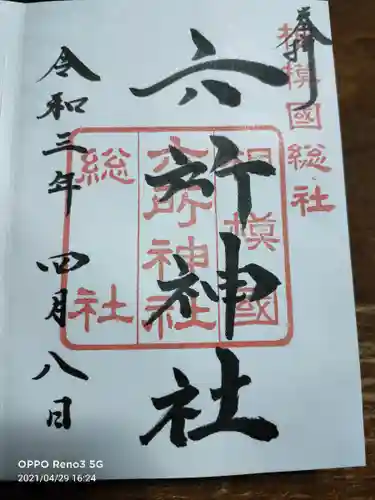 奉拝
相模國総社
六所神社
相模國
六所神社
総社
令和三年 四月八日
OPPO Reno3 5G
2021/04/29 16:24